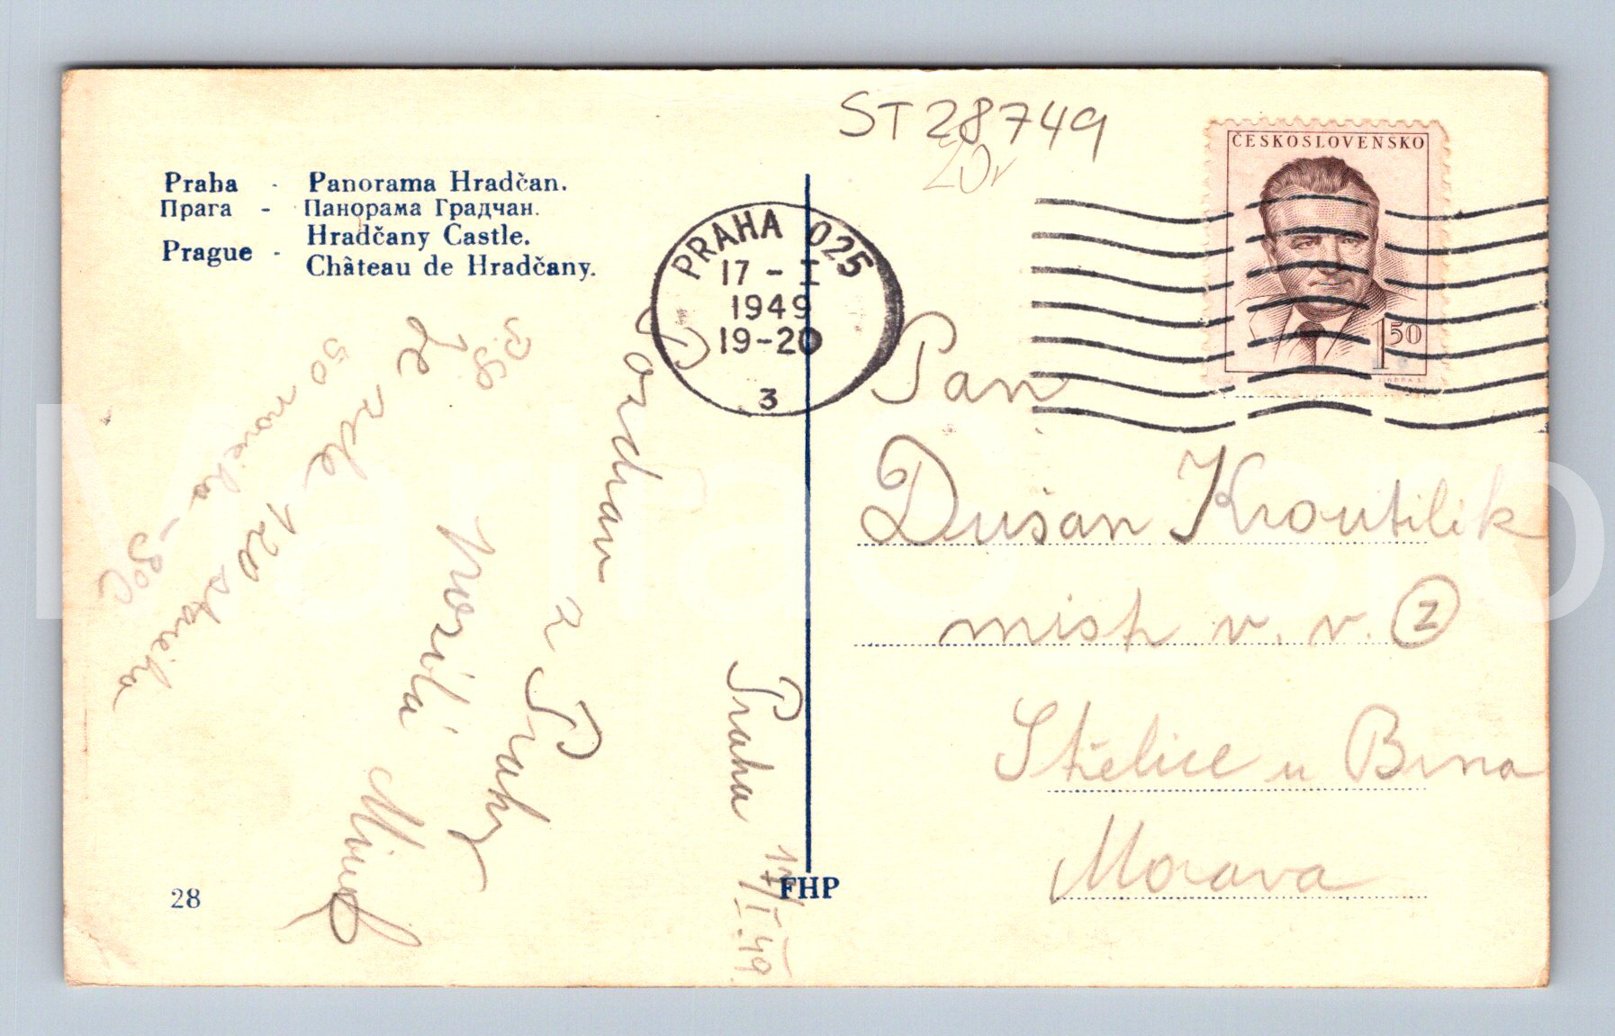 ST28749
Praha - Panorama Hradčan.
Прага - Панорама Градчан.
Prague - Hradčany Castle.
Château de Hradčany.
ČESKOSLOVENSKO
1 50
PRAHA 025
17-I
1949
19-20
3
Praha 17/I.49
Pozdrav
z Prahy
posílá
P.S.
Je zde 120 stareho
50 noveho
Pan
Dušan Kroutilík
v. v. 2
Střelice u Brna
Morava
28
FHP